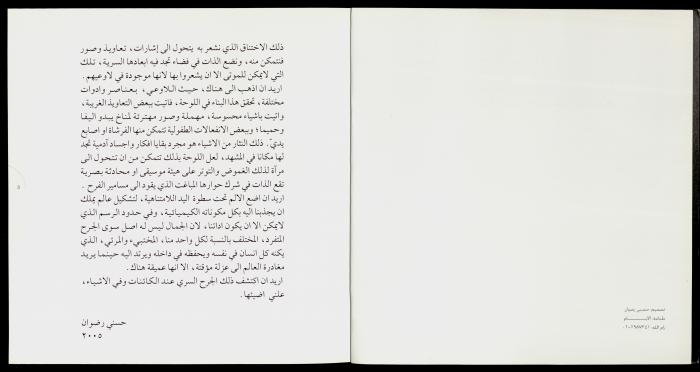 ذلك الاختناق الذي نشعر به يتحول الى إشارات، تعاويذ وصور
فنتمكن منه، ونضع الذات في فضاء تجد فيه ابعادها السرية، تلك
التي لايمكن للموتى الا ان يشعروا بها لانها موجودة في لاوعيهم.
اريد ان اذهب الى هناك، حيث اللاوعي، بعناصر وادوات
مختلفة، تحقق هذا البناء في اللوحة، فاتيت ببعض التعاويذ الغريبة،
واتيت باشياء محسوسة، مهملة وصور مهترئة لمناخ يبدو اليفا
وحميما؛ وببعض الانفعالات الطفولية تتمكن منها الفرشاة او اصابع
يديّ. ذلك النثار من الاشياء هو مجرد بقايا افكار واجساد آدمية تجد
لها مكانا في المشهد، لعل اللوحة بذلك تتمكن من ان تتحول الى
مرآة لذلك الغموض والتوتر على هيئة موسيقى او محادثة بصرية
تقع الذات في شرك حوارها المباغت الذي يقود الى مسامير الفرح.
اريد ان اضع الالم تحت سطوة اليد اللامتناهية، لتشكيل عالم يملك
ان يجذبنا اليه بكل مكوناته الكيميائية، وفي حدود الرسم الذي
لايمكن الا ان يكون اداتنا، لان الجمال ليس له اصل سوى الجرح
المتفرد، المختلف بالنسبة لكل واحد منا، المختبي، والمرئي، الذي
يكنه كل انسان في نفسه ويحفظه في داخله ويرتد اليه حينما يريد
مغادرة العالم الى عزلة مؤقتة، الا انها عميقة هناك.
اريد ان اكتشف ذلك الجرح السري عند الكائنات وفي الاشياء،
علني اضيئها.
حسني رضوان
٢٠٠٥
٥
تصميم: حسني رضوان
طباعة: الايــــام
رام الله: